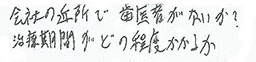 会社の近所で歯医者がないか?
治療期間がどの程度かかるか